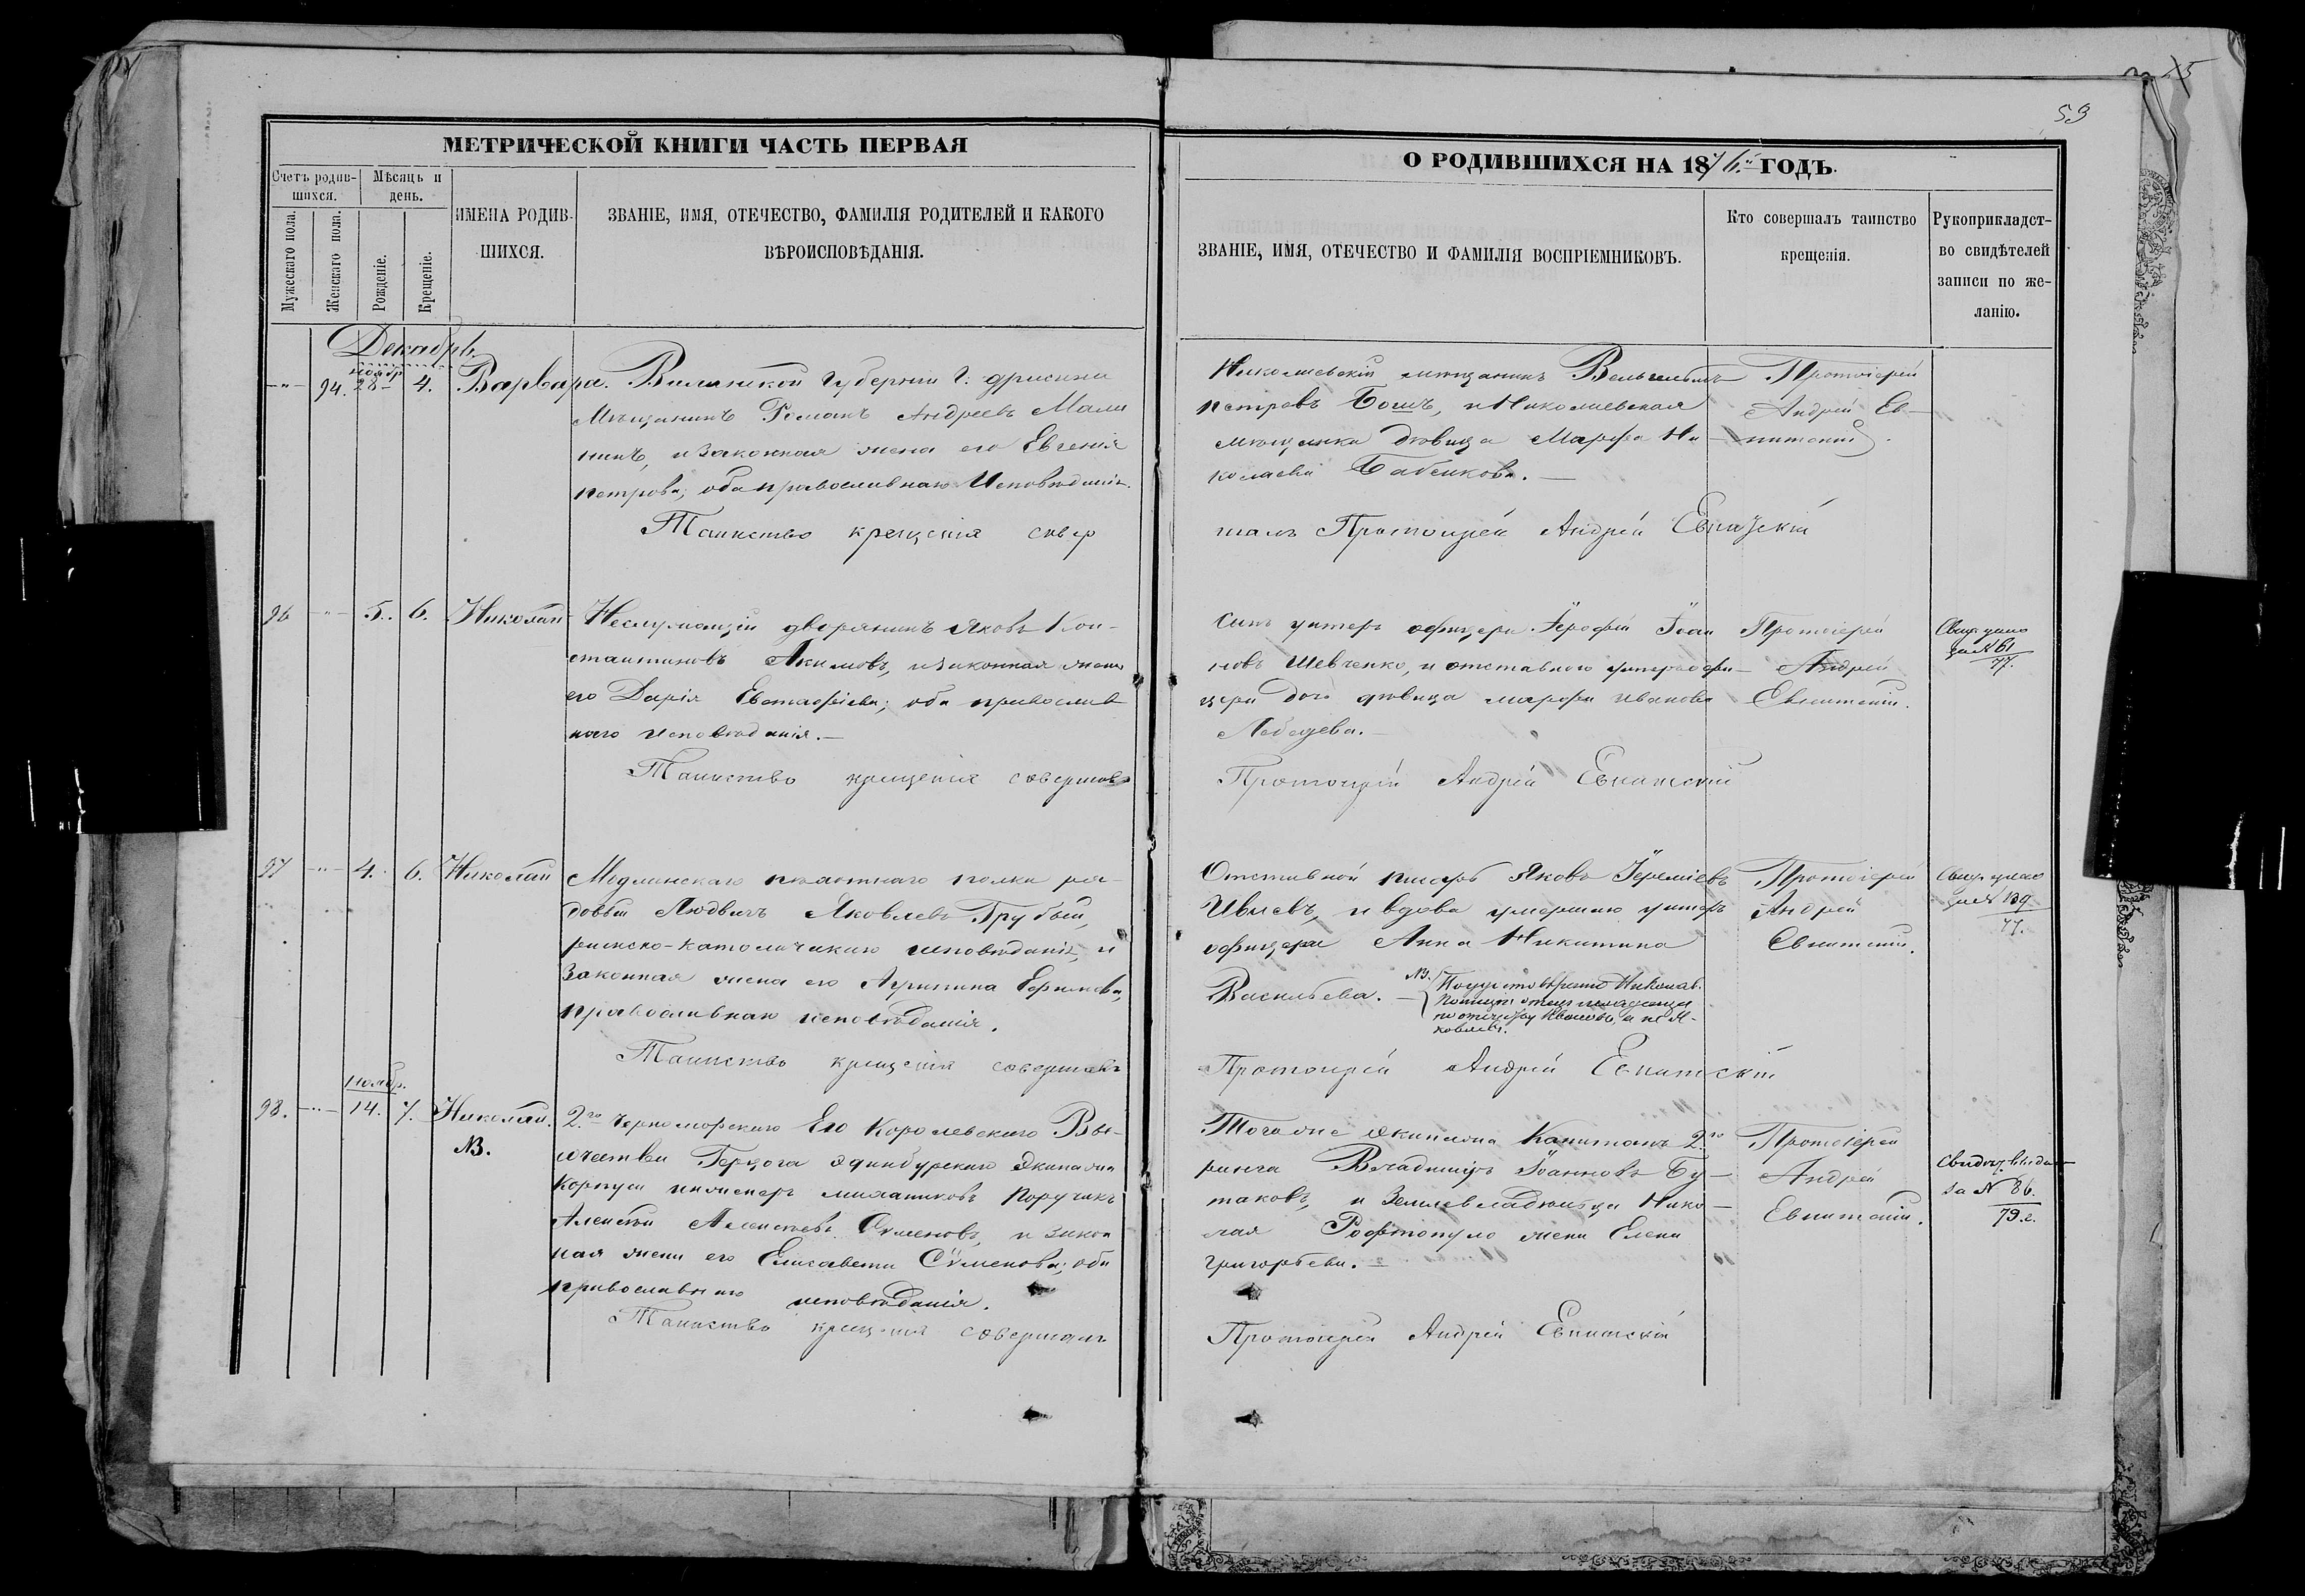 59
МЕТРИЧЕСКОЙ КНИГИ ЧАСТЬ ПЕРВАЯ
Счетъ родив-
шихся.
Мѣсяцъ и
день.
Мужескаго пола.
Женскаго пола.
Рожденіе.
Крещеніе.
ИМЕНА РОДИВ-
ШИХСЯ.
ЗВАНІЕ, ИМЯ, ОТЕЧЕСТВО, ФАМИЛІЯ РОДИТЕЛЕЙ И КАКОГО
ВѢРОИСПОВѢДАНІЯ.
О РОДИВШИХСЯ НА 1876й ГОДЪ.
ЗВАНІЕ, ИМЯ, ОТЕЧЕСТВО И ФАМИЛІЯ ВОСПРІЕМНИКОВЪ.
Кто совершалъ таинство
крещенія.
Рукоприкладст-
во свидѣтелей
записи по же-
ланію.
Декабрь.
ноябр
94. 28 4. Варвара.
губерніи г.
Мѣщанинъ Романъ Андреевъ Мали
нинъ, и законная жена его Евгенія
Петрова; оба православнаго Исповѣданія.
Таинство крещенія совер
Николаевскій мѣщанинъ Вильгельмъ
Петровъ Бошъ, и Николаевская
мѣщанка дѣвица Марфа Ни-
колаева Бабенкова.
шалъ Протоіерей Андрей
Протоіерей
Андрей
96 5. 6. Николай
Неслужащій дворянинъ Яковъ Кон-
стантиновъ Акимовъ, и законная жена
его Дарія Евстафіева; оба православ
наго исповѣданія.
Таинство крещенія совершалъ
Сынъ унтеръ офицера Іоан
новъ Шевченко, и отставного унтеръ офи-
цера дочь дѣвица Марфа Иванова
Лебедева.
Протоіерей Андрей
Протоіерей
Андрей
за № 61
77.
97 4. 6. Николай
Модлинскаго пѣхотнаго полка ря-
довый Людвигъ Яковлевъ Грубый,
римско-католическаго исповѣданія, и
законная жена его Агрипина Ефимова,
православнаго исповѣданія.
Таинство крещенія совершалъ
Отставной писарь Яковъ Іереміевъ
Ивлевъ, и вдова умершаго унтеръ
офицера Анна Никитина
Васильева.
NB.
Протоіерей Андрей
Протоіерей
Андрей
за № 139
77.
ноябр.
98. 14. 7. Николай.
NB.
2го Черноморскаго Его Королевскаго Вы-
сочества Герцога Эдинбургскаго Экипажа
Корпуса инженеръ механиковъ Поручикъ
Алексѣй Алексѣевъ и закон
ная жена его Елисавета Семенова; оба
православнаго исповѣданія.
Таинство крещенія совершалъ
Того же экипажа Капитанъ 2го
ранга Владиміръ Іоанновъ Бу-
таковъ, и Землевладѣльца Нико-
лая жена Елена
Григорьева.
Протоіерей Андрей
Протоіерей
Андрей
за № 86.
79.г.